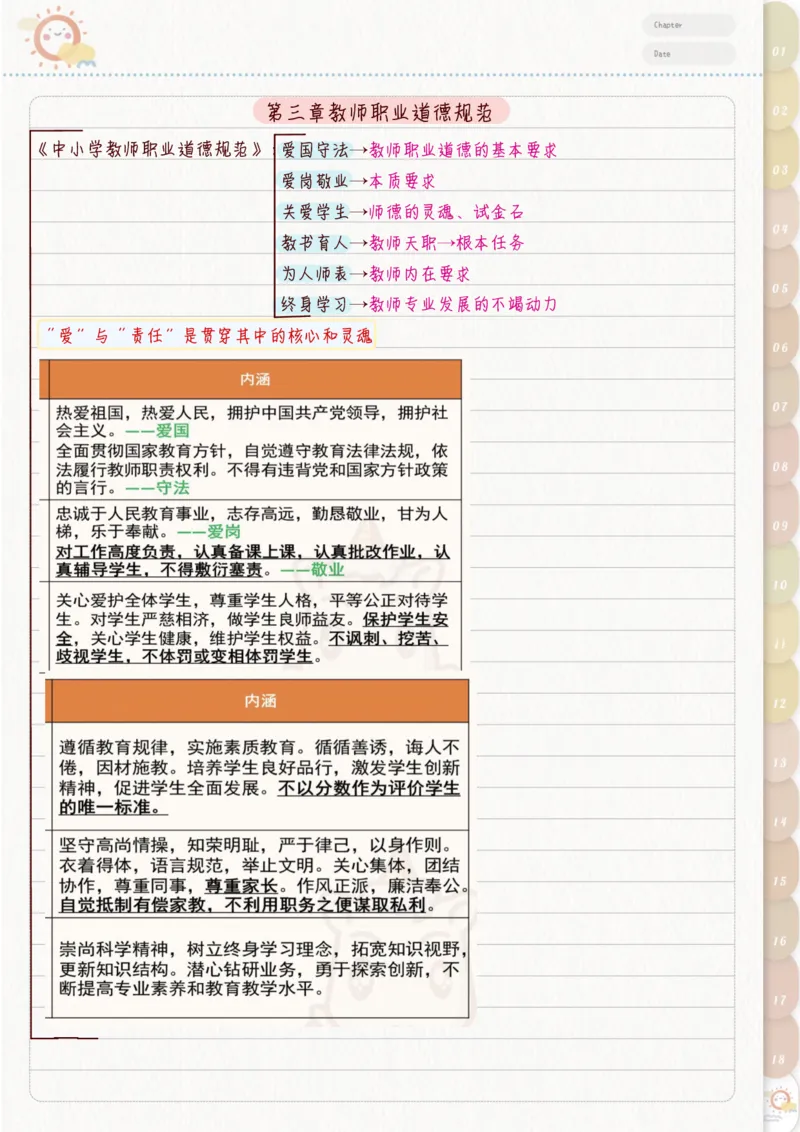 Chapter
Date
第三章教师职业道德规范
《中小学教师职业道德规范》:
爱国守法→教师职业道德的基本要求
爱岗敬业→本质要求
关爱学生→师德的灵魂、试金石
教书育人→教师天职→根本任务
为人师表→教师内在要求
终身学习→教师专业发展的不竭动力
“爱“与“责任“是贯穿其中的核心和灵魂
内涵
热爱祖国，热爱人民，拥护中国共产党领导，拥护社
会主义。——爱国
全面贯彻国家教育方针，自觉遵守教育法律法规，依
法履行教师职责权利。不得有违背党和国家方针政策
的言行。——守法
忠诚于人民教育事业，志存高远，勤恳敬业，甘为人
梯，乐于奉献。——爱岗
对工作高度负责，认真备课上课，认真批改作业，认
真辅导学生，不得敷衍塞责。——敬业
关心爱护全体学生，尊重学生人格，平等公正对待学
生。对学生严慈相济，做学生良师益友。保护学生安
全，关心学生健康，维护学生权益。不讽刺、挖苦、
歧视学生，不体罚或变相体罚学生。
内涵
遵循教育规律，实施素质教育。循循善诱，诲人不
倦，因材施教。培养学生良好品行，激发学生创新
精神，促进学生全面发展。不以分数作为评价学生
的唯一标准。
坚守高尚情操，知荣明耻，严于律己，以身作则。
衣着得体，语言规范，举止文明。关心集体，团结
协作，尊重同事，尊重家长。作风正派，廉洁奉公。
自觉抵制有偿家教，不利用职务之便谋取私利。
崇尚科学精神，树立终身学习理念，拓宽知识视野，
更新知识结构。潜心钻研业务，勇于探索创新，不
断提高专业素养和教育教学水平。
01
02
03
04
05
06
07
08
09
10
11
12
13
14
15
16
17
18